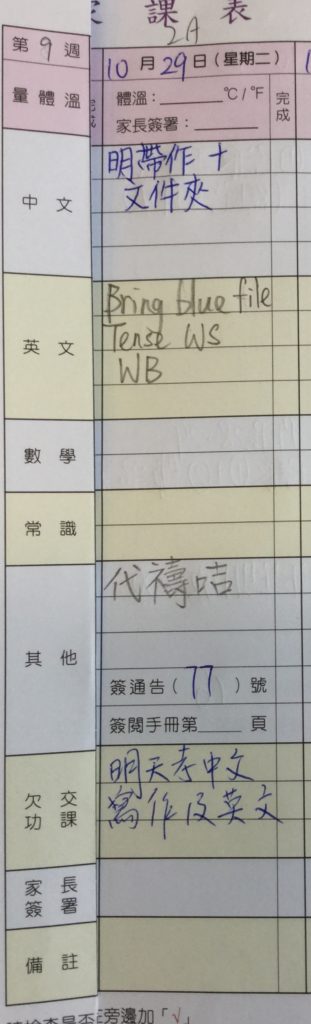 課表
2A
第9週
10月29日(星期二)
量體溫
體溫:______°C/°F
家長簽署:______
完成
中文
明帶作+
文件夾
英文
Bring blue file
Tense WS
WB
數學
常識
其他
代禱咭
簽通告(77)號
簽閱手冊第____頁
欠交功課
明天考中文
寫作及英文
家長簽署
備註
旁邊加「√」